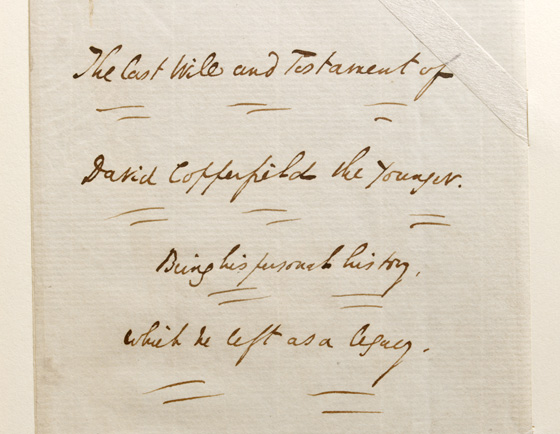 The last Will and Testament of
David Copperfield the Younger.
Being his personal history,
which he left as a legacy.